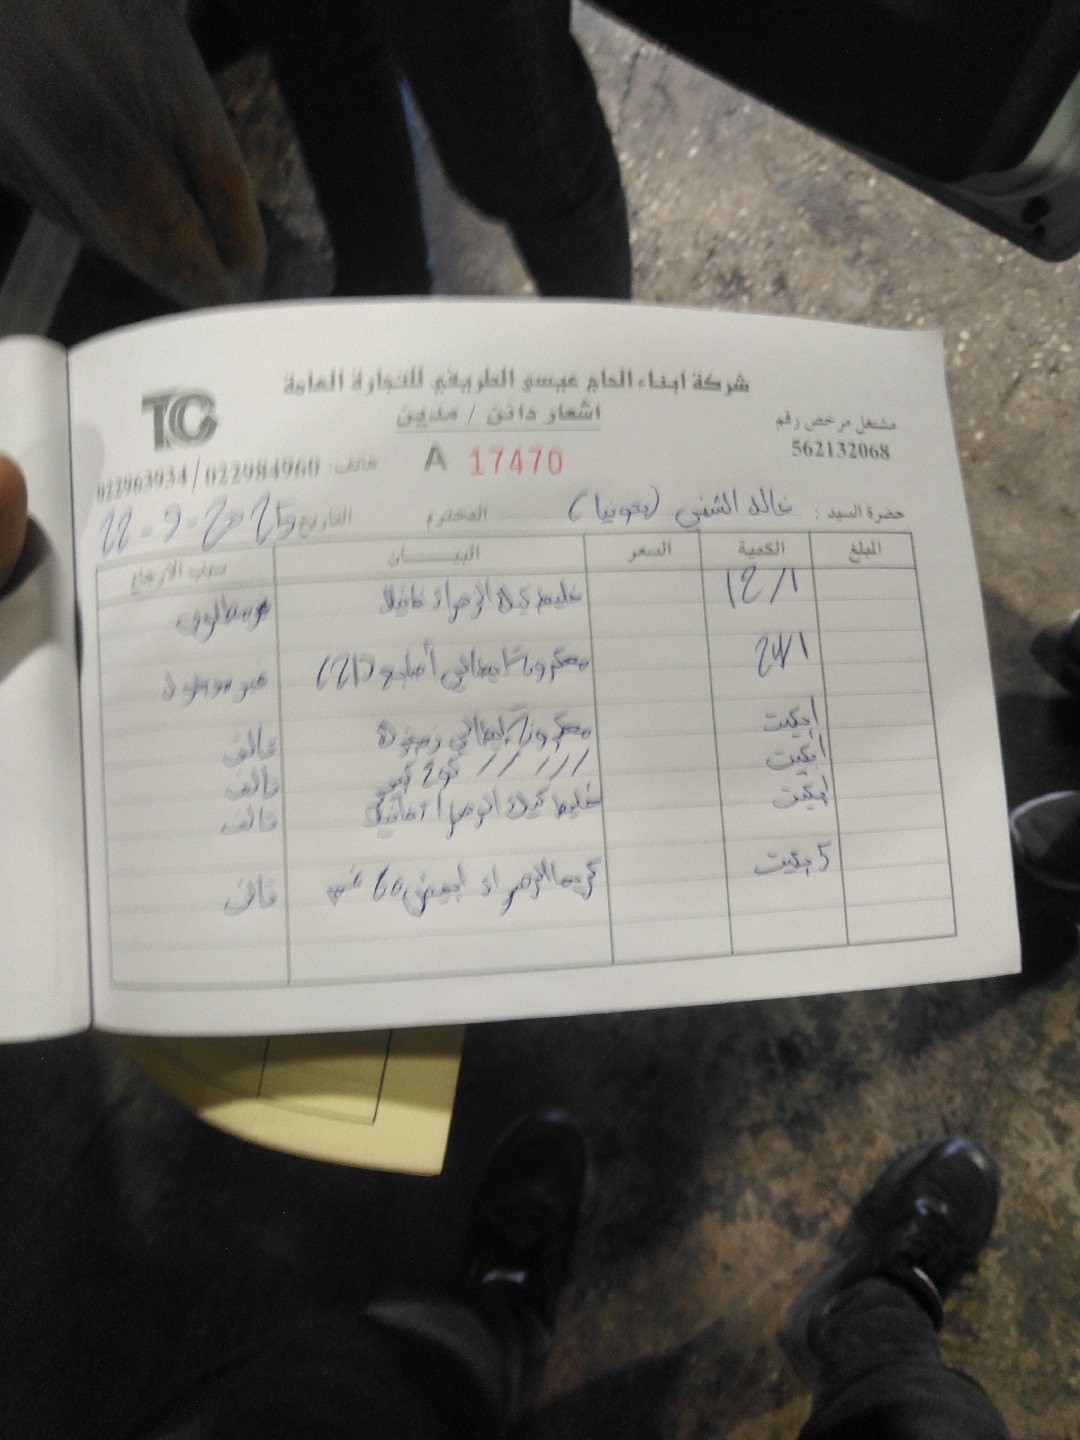 شركة ابناء الحاج عيسى الطريفي للتجارة العامة
TC
اشعار دائن / مدين
مشتغل مرخص رقم
562132068
هاتف: 022984960 / 022963934
A 17470
حضرة السيد : خالد الشني (بعونيا) المحترم التاريخ 22-9-2025
المبلغ الكمية السعر البيـــــان سبب الارجاع
12/1 خليط كيك الزهراء فانيلا غير مطلوب
24/1 معكرونة ايطالي أصابع (21)
1 بكيت معكرونة ايطالي تالف
1 بكيت // // // تالف
1 بكيت خليط كيك الزهراء فانيلا تالف
5 بكيت كريما الزهراء ابيض 60 غم تالف